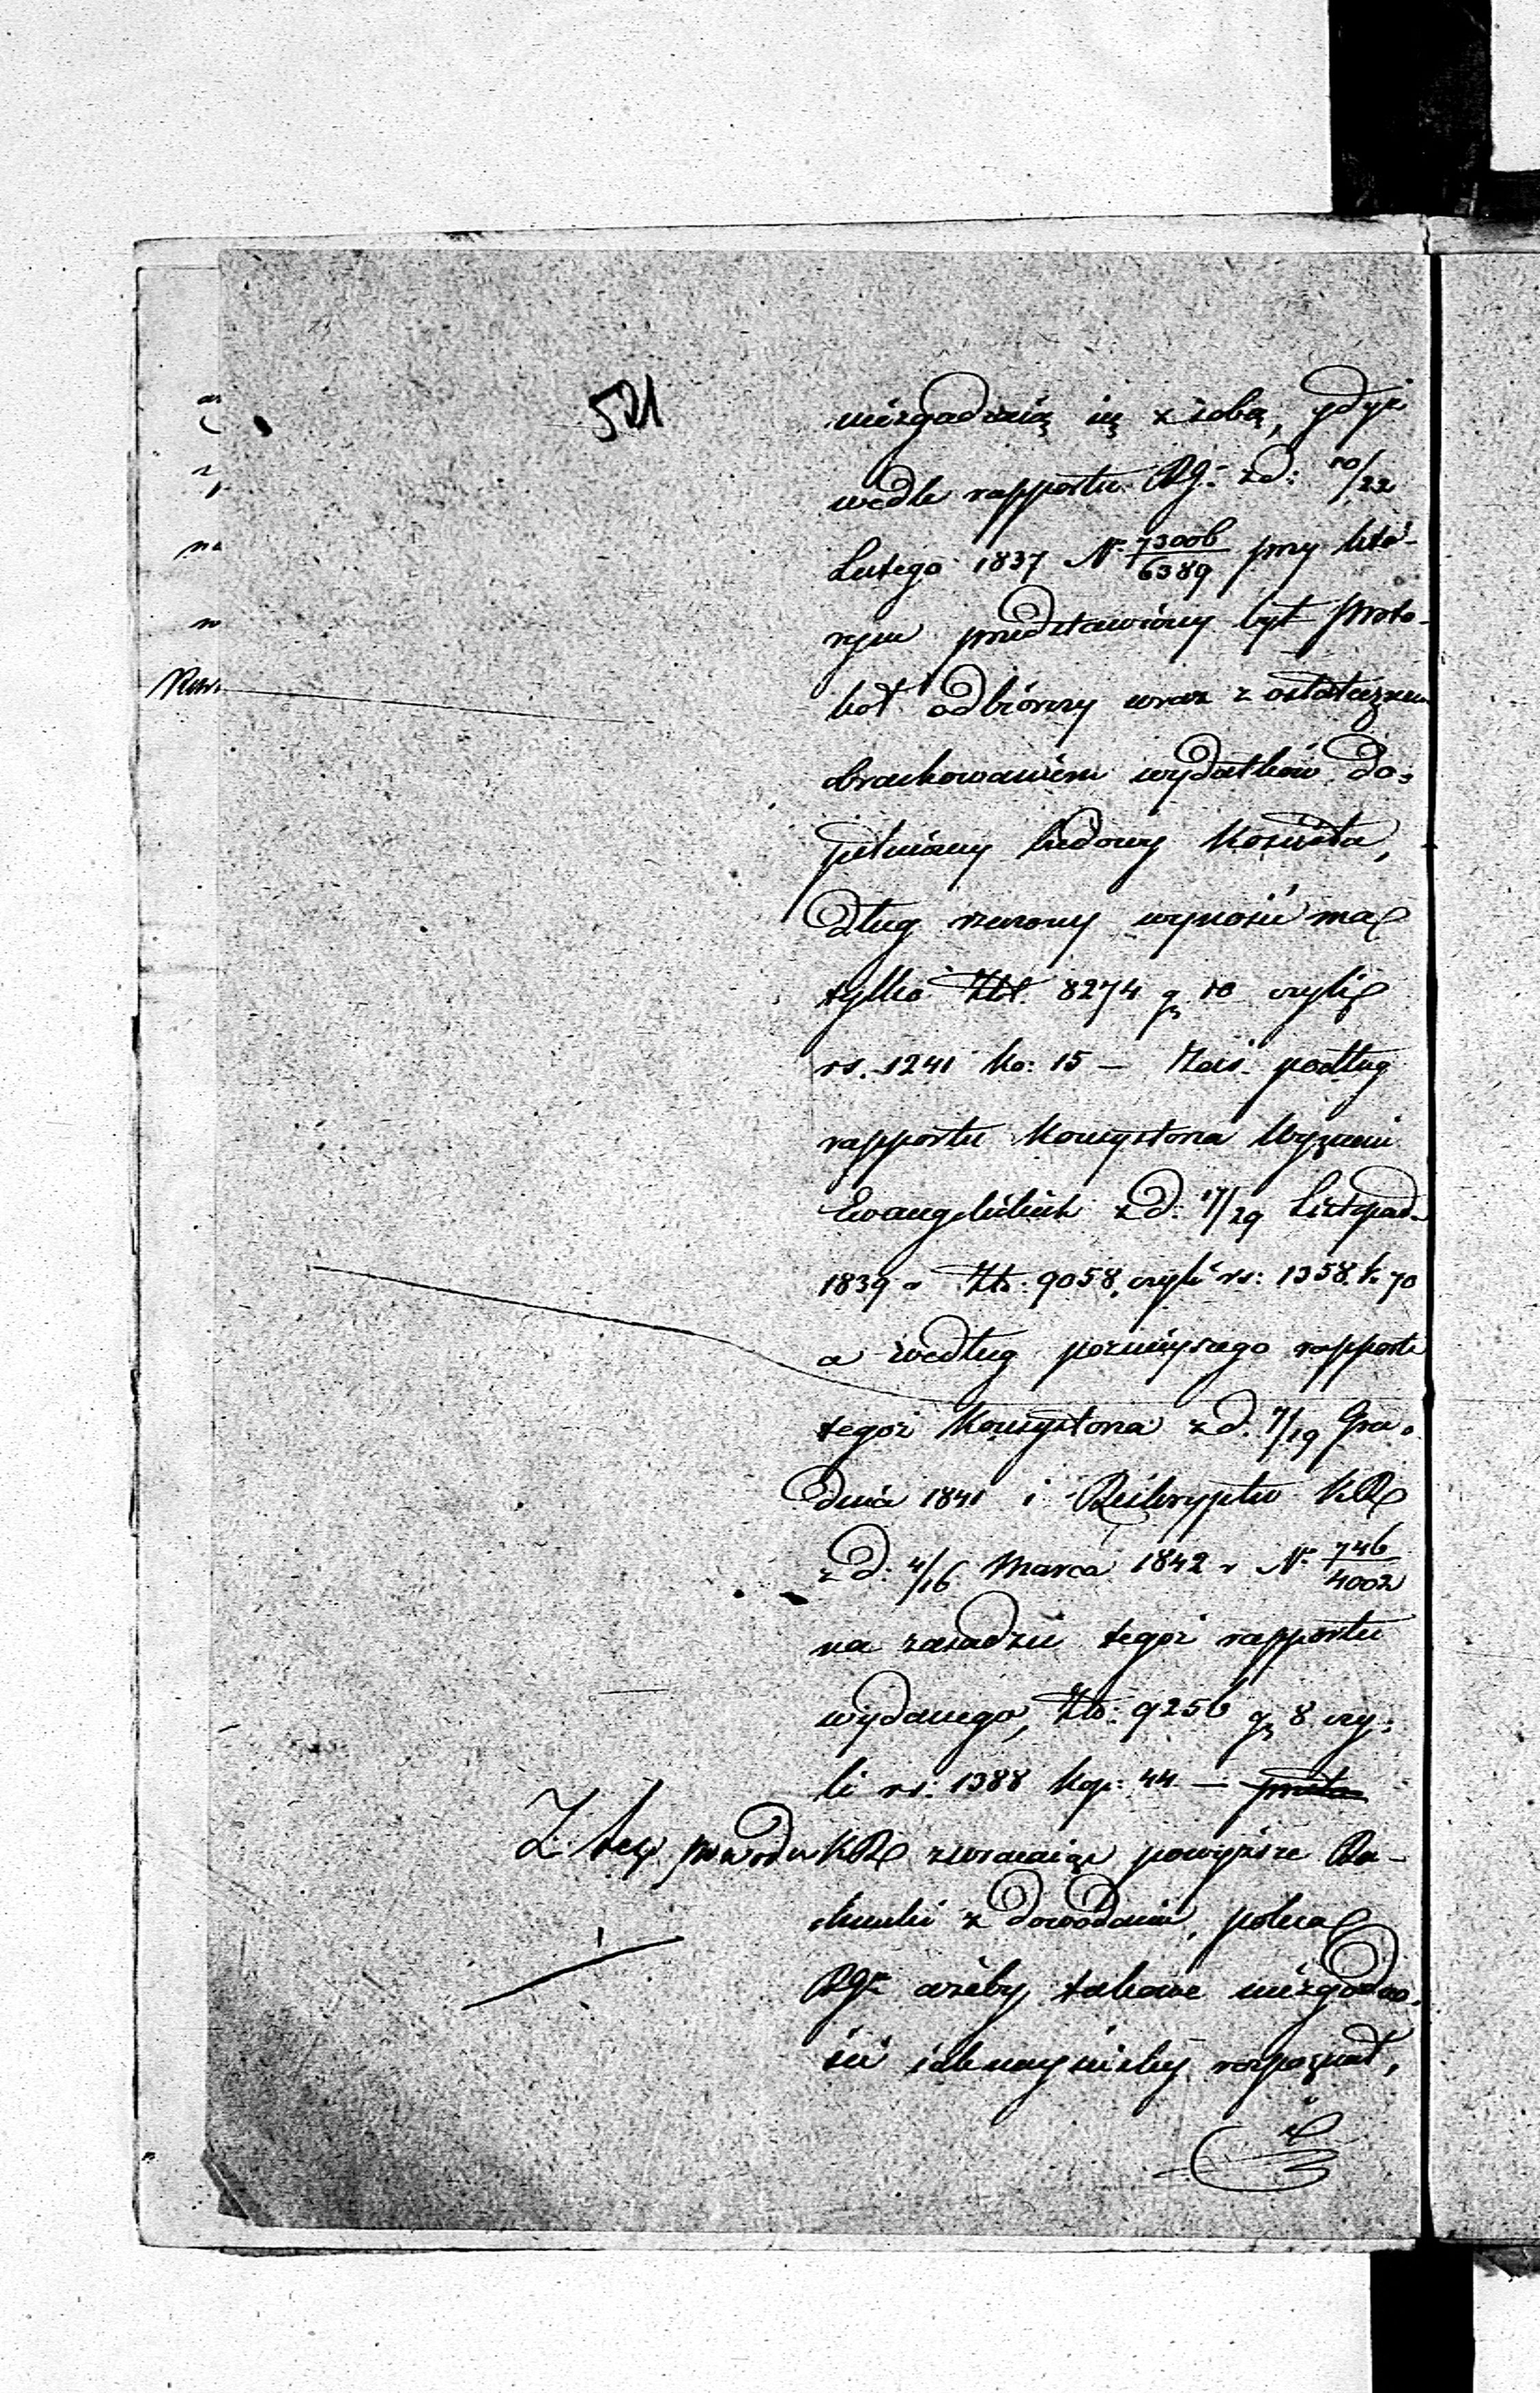 521
niezgadzaią się z sobą, gdyż
wedle rapportu RGo zd: 10/22
Lutego 1837 N 73006/6389 przy któ-
rym przedstawiony był proto-
koł odbiorczy wraz z ostateczném
obrachowaniem wydatków do-
pełnioney budowy Kościoła,
dług rzeczony wynosić ma
tylko Złł. 8274 gr 10 czyli
rs. 1241 ko: 15 – Zaś podług
rapportu Konsystorza Wyznań
Ewangelickich z d: 17/29 Listopad.
1839 r Złt: 9058, czyli rs: 1358 k. 70
a według poznieyszego rapportu
tegoż Konsystorza z d. 7/19 Gru-
dnia 1841 i Reskryptu KR
z d: 4/16 Marca 1842 r N. 746/4002
na zasadzie tegoż rapportu
wydanego, Złt: 9256 gr 8 czy-
li rs: 1388 kop: 44 –
Z tego powodu KR zwracaiąc powyższe Ra-
chunki z dowodami, poleca
RGo ażeby takowe niezgodno-
ści iak nayściśley rozpoznał,